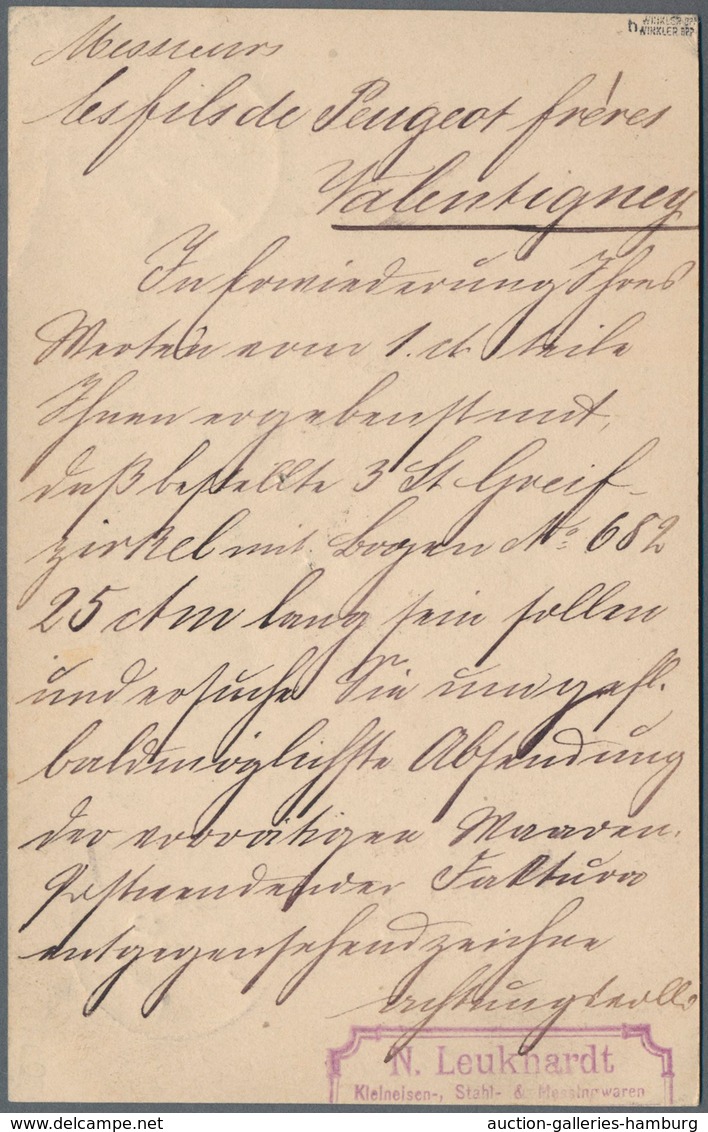 h WINKLER BPP
WINKLER BPP
Messieurs
les fils de Peugeot frères
Valentigney
In Erwiederung Ihres
Werten vom 1. d. teile
Ihnen ergebenst mit,
daß bestellte 3 St Greif-
zirkel mit Bogen No 682
25 ctm lang sein sollen
und ersuche Sie um gefl.
baldmöglichste Absendung
der vorrätigen Waaren.
Postwendender Faktura
entgegensehend zeichne
achtungsvoll
N. Leukhardt
Kleineisen-, Stahl- & Messingwaren
auction-galleries-hamburg